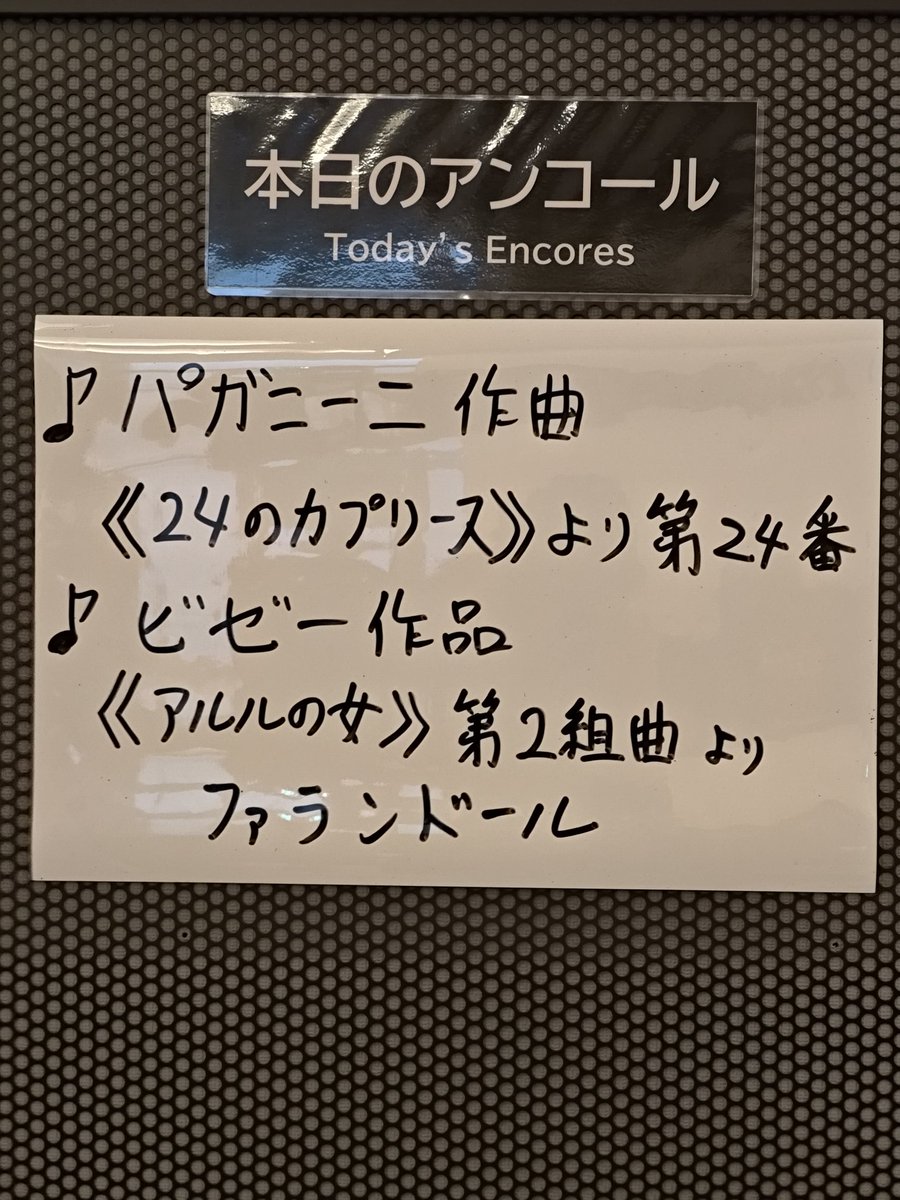 本日のアンコール
Today's Encores
♪ パガニーニ 作曲
《24のカプリース》より 第24番
♪ ビゼー 作品
《アルルの女》第2組曲 より
ファランドール